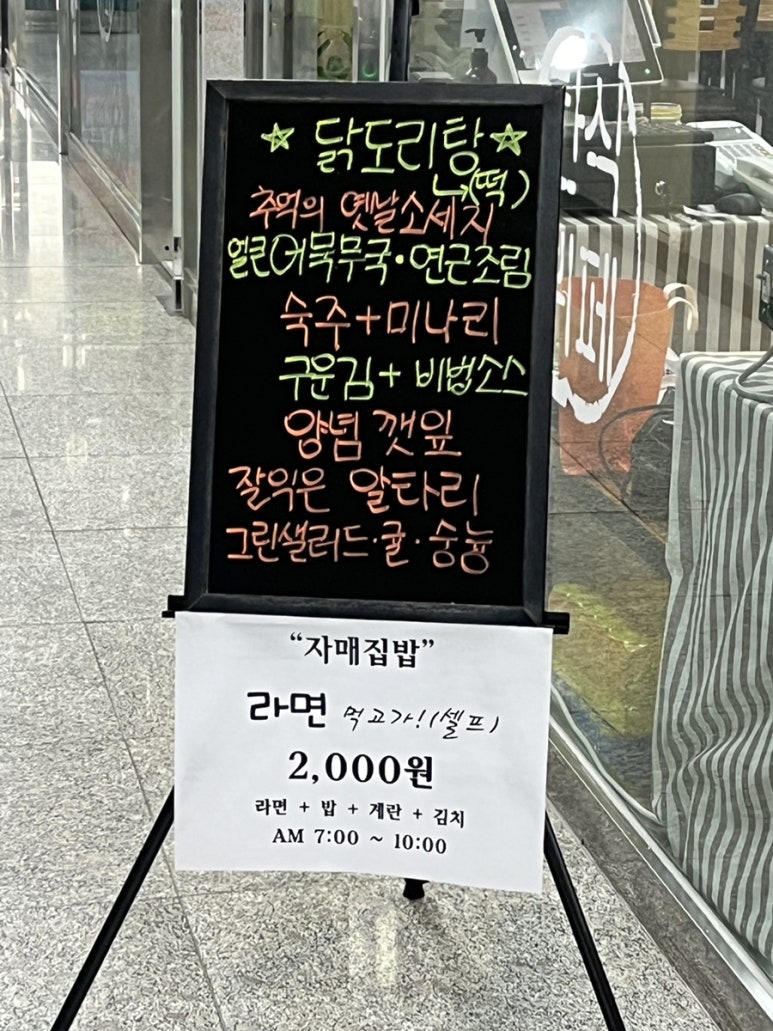 ☆ 닭도리탕 ☆
↳(떡)
추억의 옛날소세지
얼큰어묵무국·연근조림
숙주+미나리
구운김+비법소스
양념 깻잎
잘익은 알타리
그린샐러드·귤·숭늉
"자매집밥"
라면 먹고가!(셀프)
2,000원
라면 + 밥 + 계란 + 김치
AM 7:00 ~ 10:00